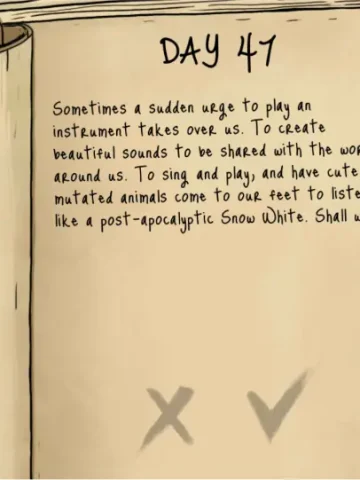 DAY 47
Sometimes a sudden urge to play an
instrument takes over us. To create
beautiful sounds to be shared with the
around us. To sing and play, and have cute
mutated animals come to our feet to
like a post-apocalyptic Snow White. Shall